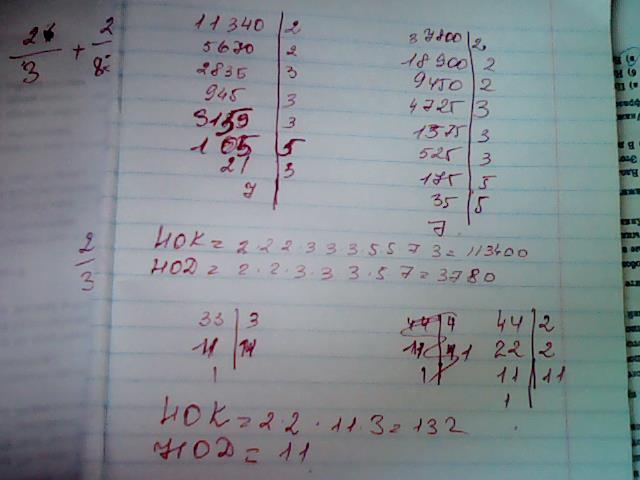 11340 | 2
5670 | 2
2835 | 3
945 | 3
3 | 3
105 | 5
21 | 3
7
37800 | 2
18900 | 2
9450 | 2
4725 | 3
1575 | 3
525 | 3
175 | 5
35 | 5
7
2/3
НОК = 2·2·2·3·3·3·5·5·7·3=113400
НОД = 2·2·3·3·3·5·7=3780
33 | 3
11 | 11
1
44 | 4
1
44 | 2
22 | 2
11 | 11
1
НОК = 2·2·11·3=132
НОД = 11